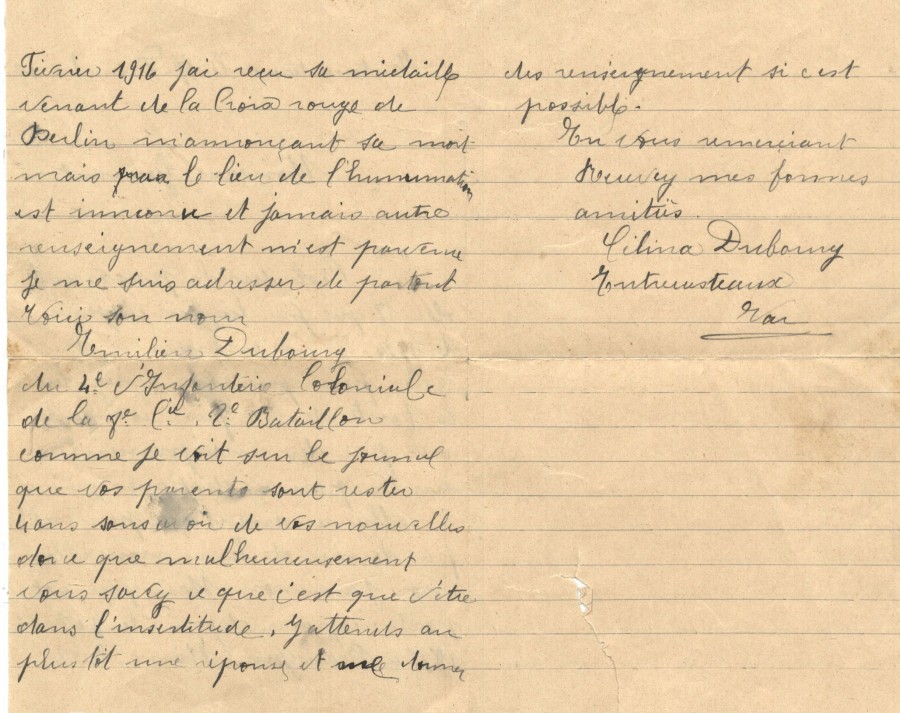 Février 1916 j'ai reçu sa médaille
venant de la Croix rouge de
Berlin m'annonçant sa mort
mais le lieu de l'hunumation
est innconu et jamais autre
renseignement m'est parvenu
je me suis adresser de partout
Voici son nom
Emilien Dubourg
du 4e d'Infanterie Coloniale
de la Cie. 2e Bataillon
comme je voit sur le journal
que vos parents sont rester
4 ans sans avoir de vos nouvelles
donc que malheureusement
vous savey ce que c'est que d'être
dans l'insertitude, j'attends au
plustôt une réponse et me donner
des renseignement si c'est
possible.
En vous remerciant
Recevey mes bonnes
amitiés.
Célina Dubourg
Entrecasteaux
Var